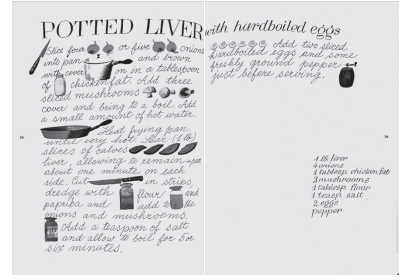 POTTED LIVER with hardboiled eggs
Slice four or five onions
into pan and brown
with cover on in a tablespoon
of chickenfat. Add three
sliced mushrooms
cover and bring to a boil. Add
a small amount of hot water.
Heat frying pan
until very hot. Sear (1 lb)
slices of calves
liver, allowing to remain in pan
about one minute on each
side. Cut in strips,
dredge with flour and
paprika and add to the
onions and mushrooms.
Add a teaspoon of salt
and allow to boil for 5 or
six minutes.
Add two sliced
hardboiled eggs and some
freshly ground pepper
just before serving.
1 lb liver
4 onions
1 tablesp. chicken fat
3 mushrooms
1 tablesp. flour
1 teasp. salt
2 eggs
pepper